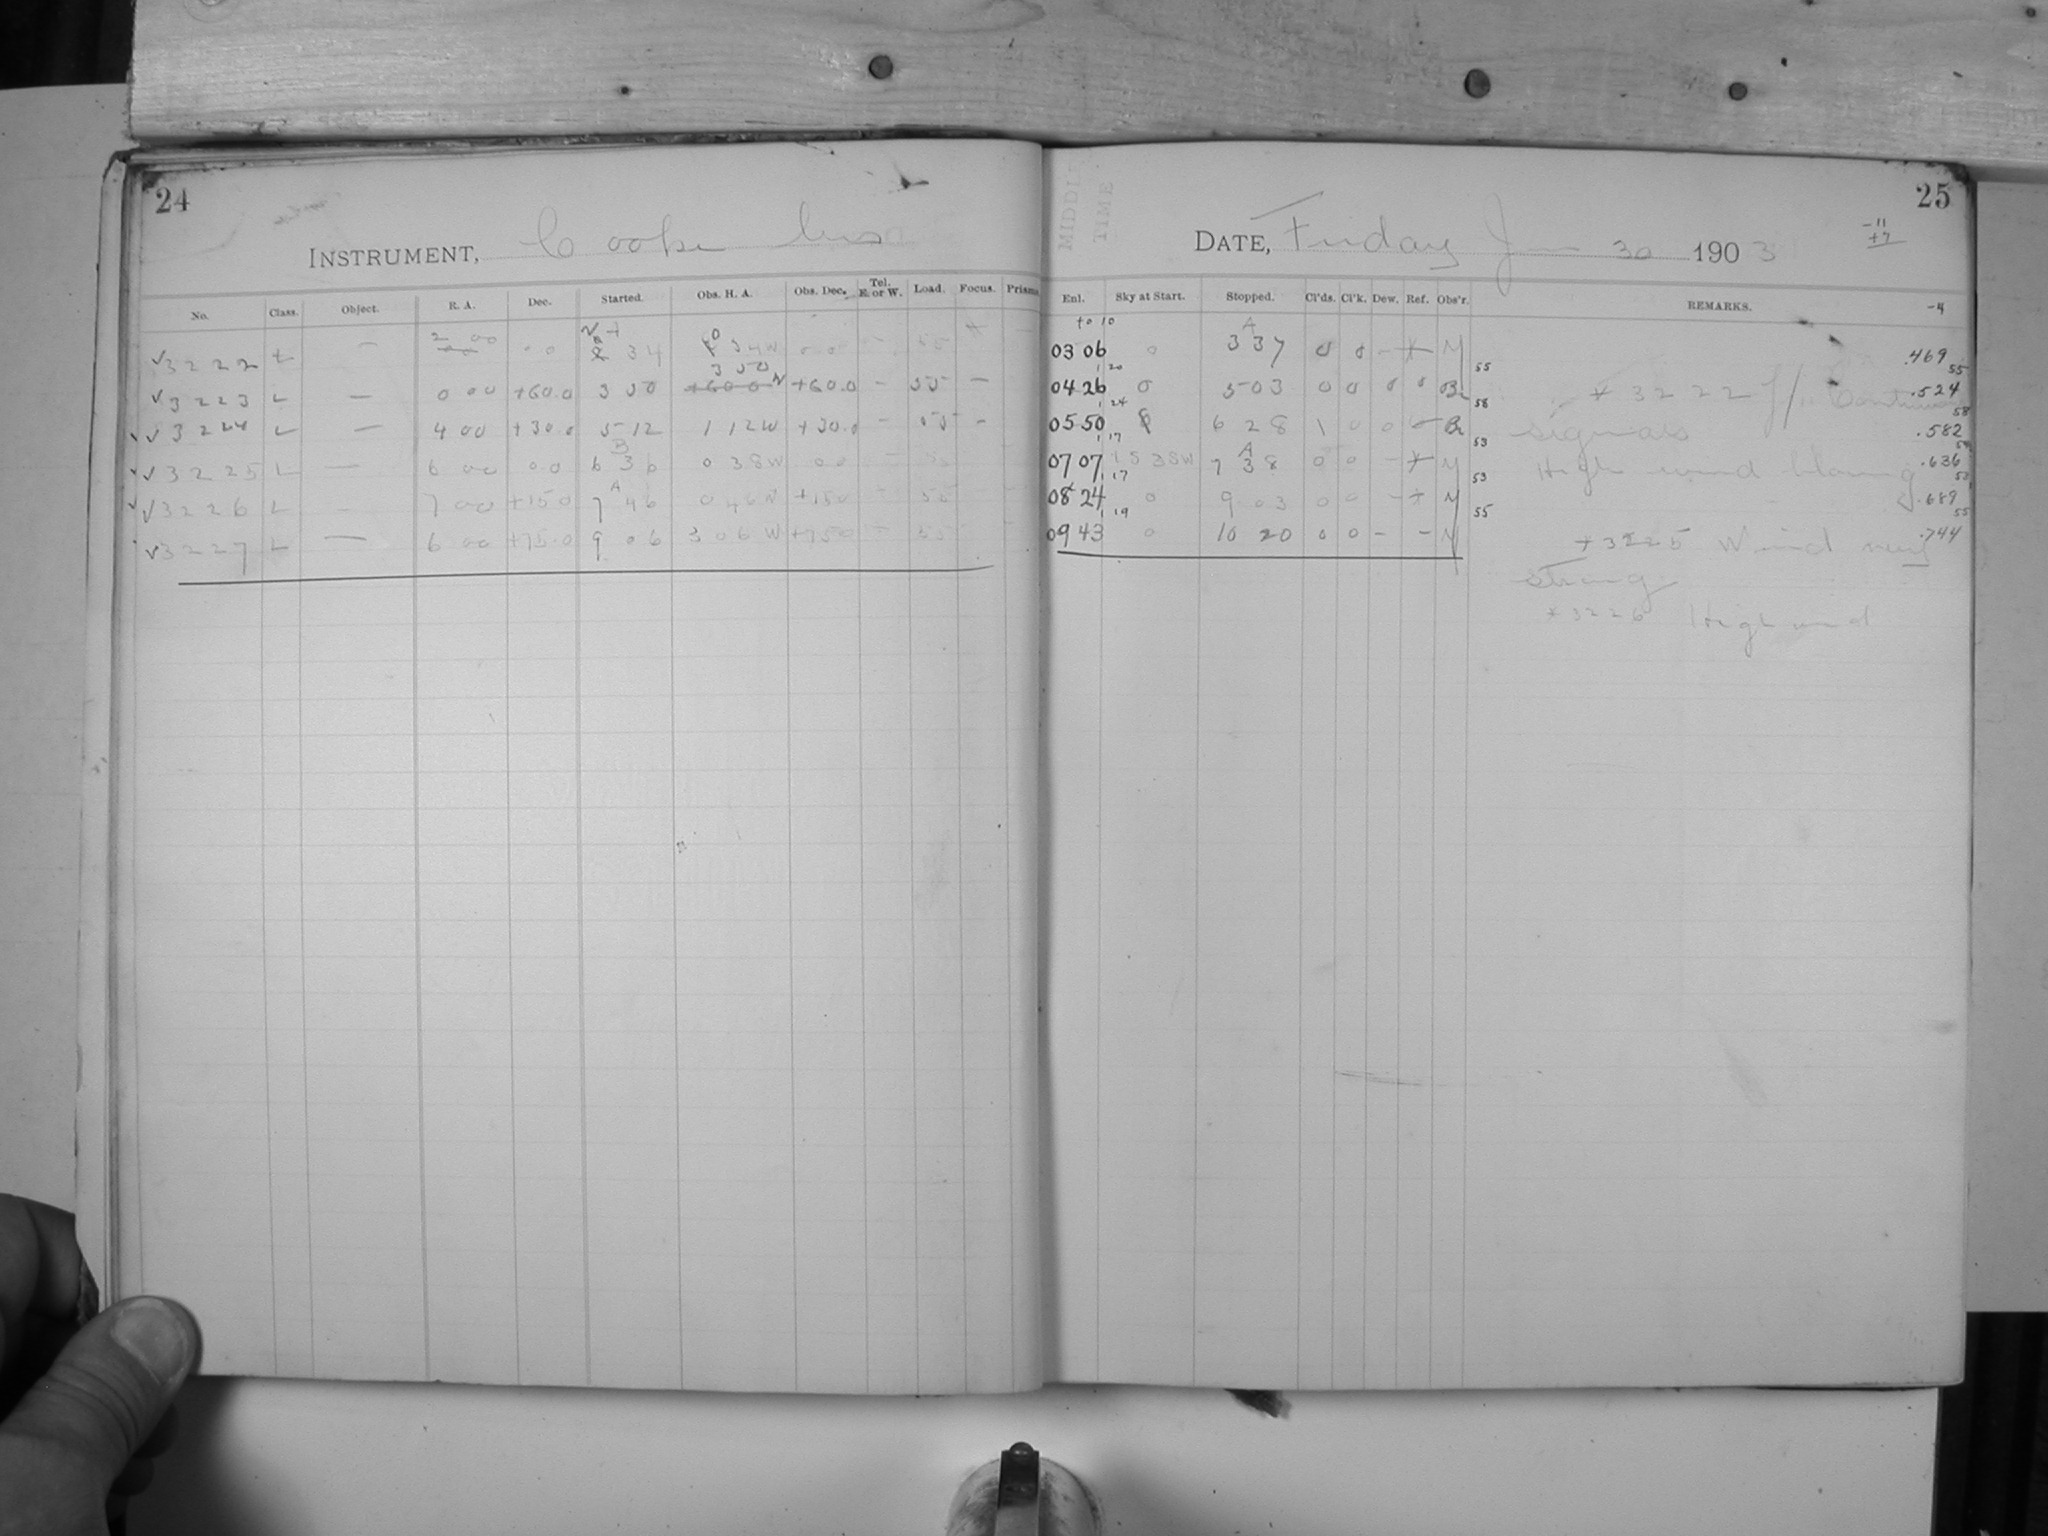 24
INSTRUMENT, Cooke lens
No. Class. Object. R. A. Dec. Started. Obs. H. A. Obs. Dec. Tel. E. or W. Load. Focus. Prisms
2 00
√3222 L — 0 0 2 34 0 34 W 0 0 — 55
3 50
√3223 L — 0 00 +60.0 3 50 +60.0 — 55 —
√√3224 L — 4 00 +30.0 5 12 1 12 W +30.0 — 55 —
√√3225 L — 6 00 0 0 6 36 0 38 W 0 0 — 55
√√3226 L — 7 00 +15 0 7 46 0 46 W +15 0 — 55
√3227 L — 6 00 +75.0 9 06 3 06 W +75 0 — 55
25
MIDDL
TIME
DATE, Friday Jan 30 1903
-11
+7
-4
Enl. Sky at Start. Stopped. Cl'ds. Cl'k. Dew. Ref. Obs'r. REMARKS.
to 10
03 06 0 3 37 0 0 — M .469
1 20 55 55
04 26 0 5 03 0 0 0 0 Br * 3222 .524
1 24 58 58
05 50 6 28 1 0 0 — Br signals .582
1 17 53
07 07 7 38 0 0 — * M High wind blowing .636
1 17 53 53
08 24 0 9 03 0 0 — M .689
1 19 55 55
09 43 0 10 20 0 0 — — M * 3225 Wind very .744
strong
* 3226 High wind